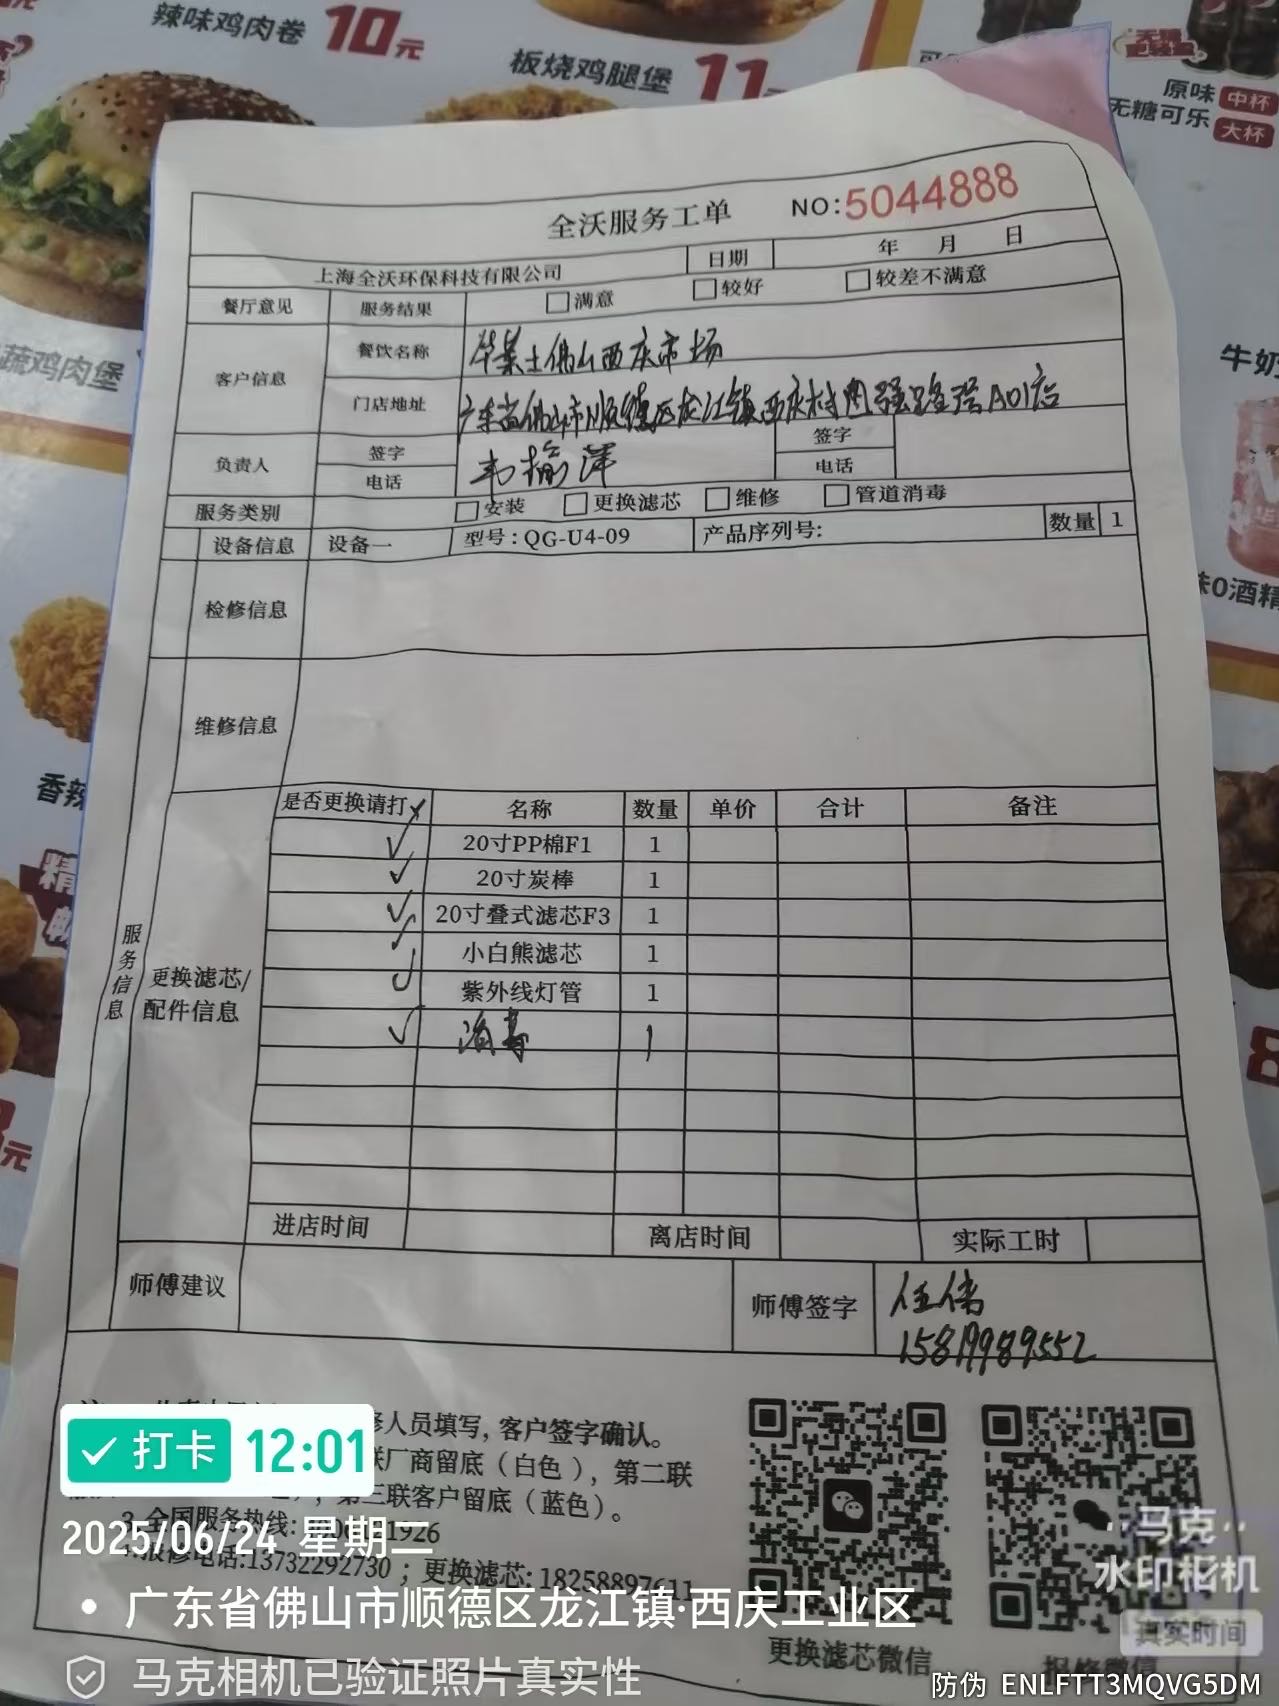 辣味鸡肉卷 10元
板烧鸡腿堡 11元
原味 中杯
无糖可乐 大杯
蔬鸡肉堡
牛奶
0酒精
香辣
全沃服务工单 NO:5044888
上海全沃环保科技有限公司 日期 年 月 日
餐厅意见 服务结果 满意 较好 较差不满意
客户信息 餐饮名称 华莱士佛山西庆市场
门店地址 广东省佛山市顺德区龙江镇西庆村 A01店
负责人 签字 签字
电话 电话
服务类别 安装 更换滤芯 维修 管道消毒
设备信息 设备一 型号:QG-U4-09 产品序列号: 数量 1
检修信息
维修信息
服务信息
更换滤芯/配件信息
是否更换请打✓ 名称 数量 单价 合计 备注
✓ 20寸PP棉F1 1
✓ 20寸炭棒 1
✓ 20寸叠式滤芯F3 1
✓ 小白熊滤芯 1
✓ 紫外线灯管 1
✓ 消毒 1
进店时间 离店时间 实际工时
师傅建议 师傅签字 任伟
15819989552
修人员填写,客户签字确认。
联厂商留底（白色），第二联
第三联客户留底（蓝色）。
3.全国服务热线: 1926
报修电话:13732292730；更换滤芯:18258897611
更换滤芯微信 报修微信
打卡 12:01
2025/06/24 星期二
广东省佛山市顺德区龙江镇·西庆工业区
马克相机已验证照片真实性
马克
水印相机
真实时间
防伪 ENLFTT3MQVG5DM